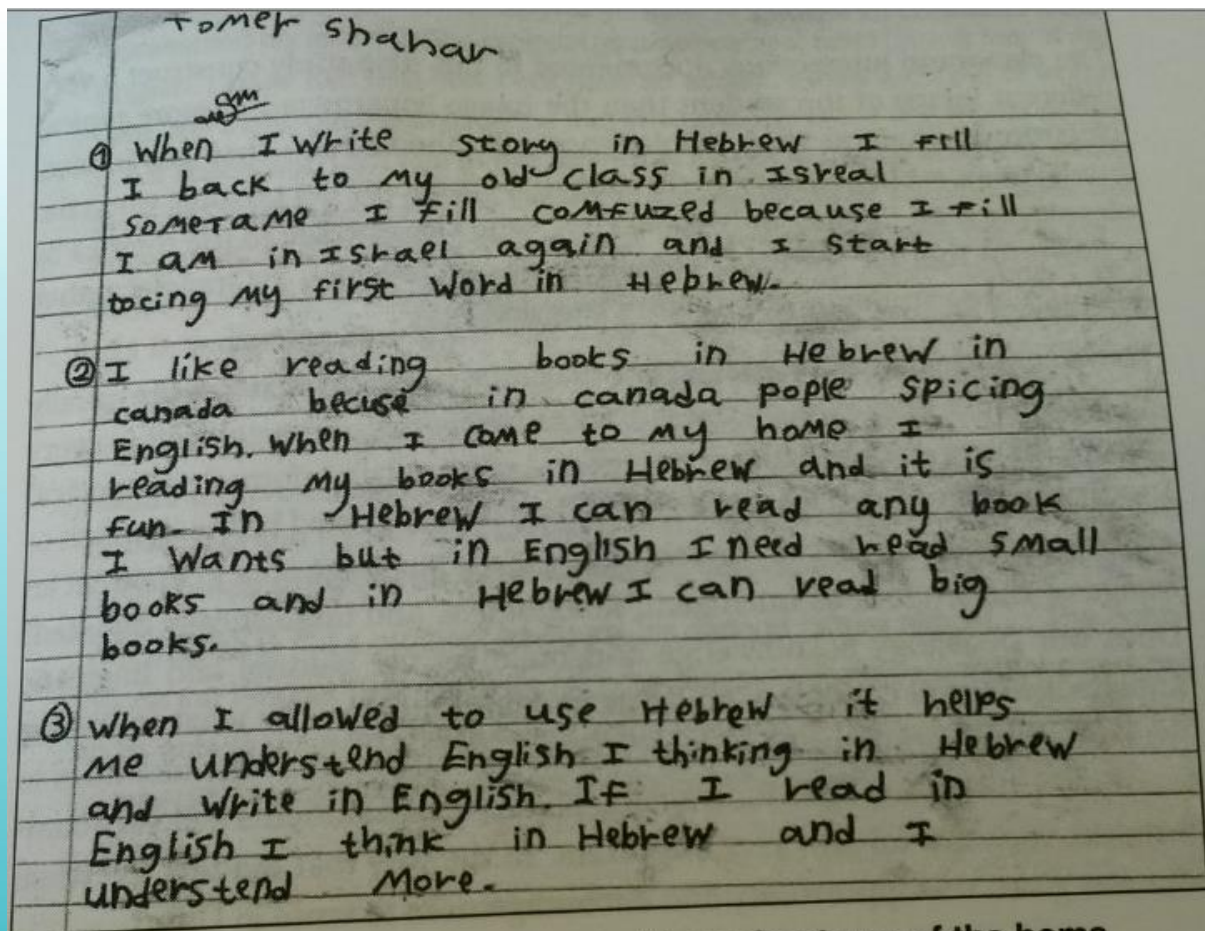 Tomer Shahar
① When I Write story in Hebrew I fill
I back to My old class in Isreal
SOMETAME I fill COMFUZED because I fill
I AM in ISrael again and I Start
tocing My first Word in Hebrew.
② I like reading books in Hebrew in
canada becuse in canada pople spicing
English. When I come to my home I
reading My books in Hebrew and it is
fun. In Hebrew I can read any book
I Wants but in English I need read small
books and in Hebrew I can read big
books.
③ When I allowed to use Hebrew it helps
Me understend English I thinking in Hebrew
and Write in English. If I read in
English I think in Hebrew and I
understend More.